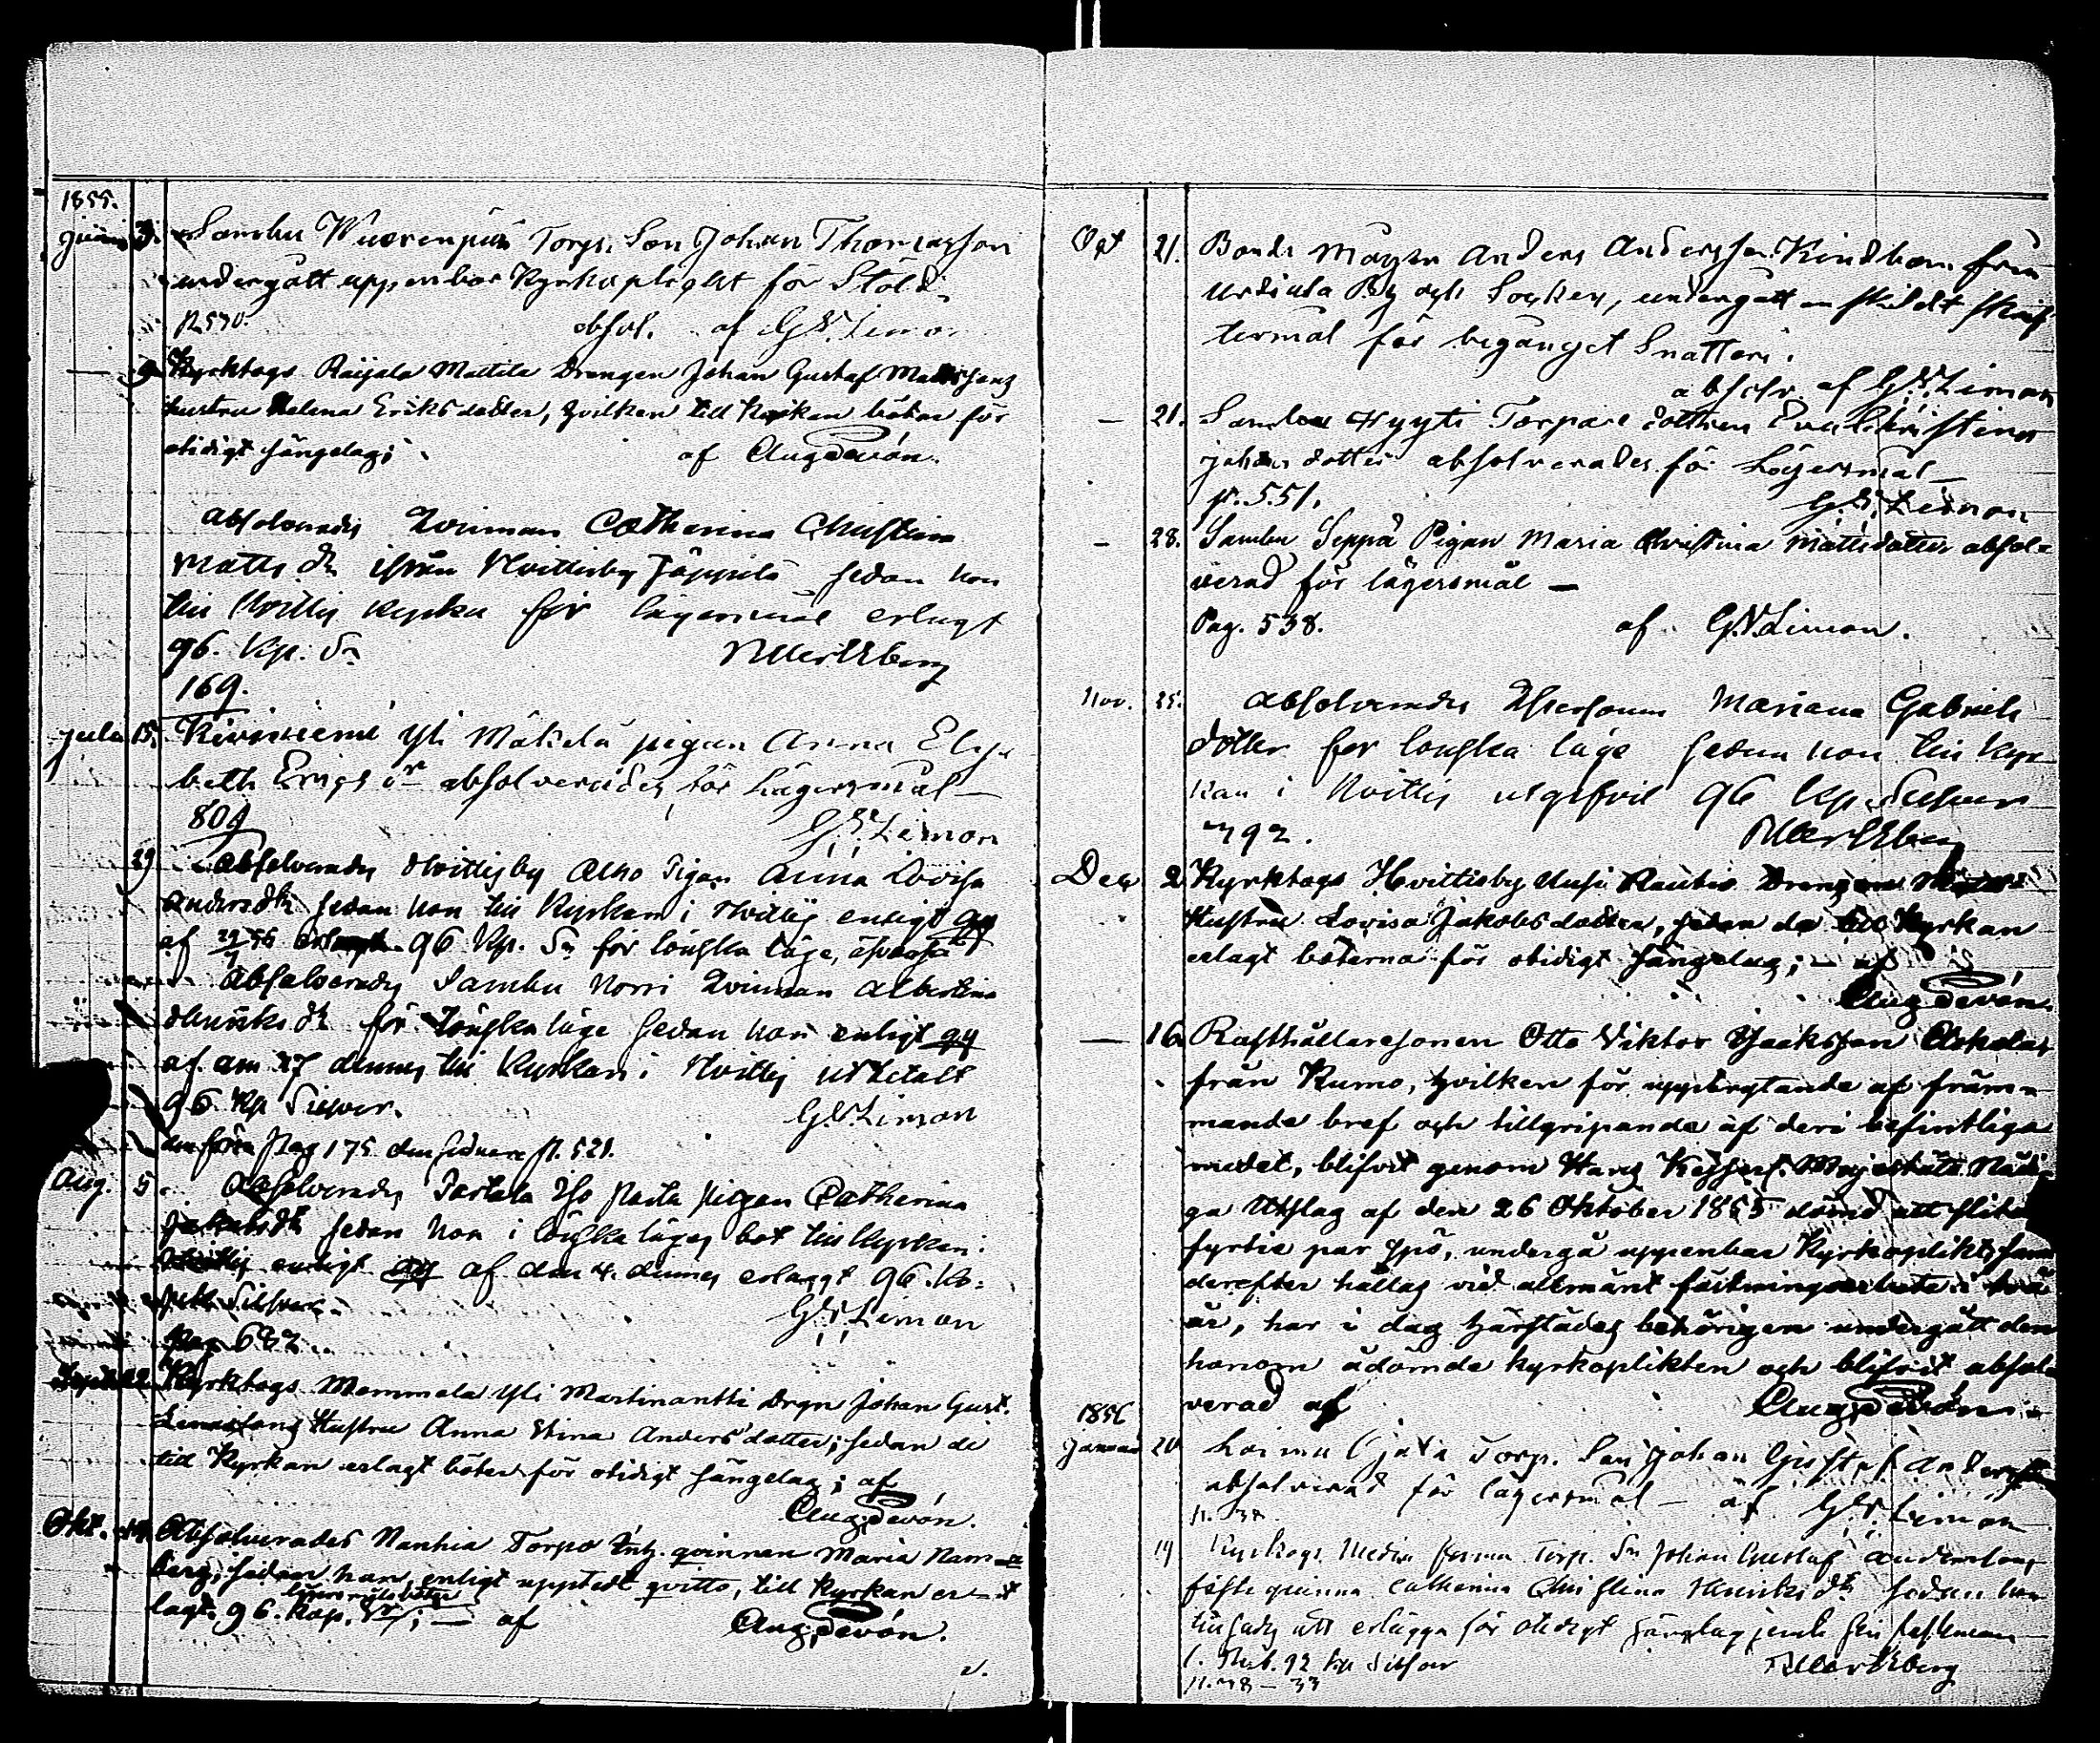 1855.
Juni 3. Sambu Wuorenpää Torp. Son Johan Thomasson
undergått uppenbar Kyrkoplicht för Stöld.
p. 570. absol. af G. W. Limon
— 9. Kyrktogs Raijala Mattila Drengen Johan Gustaf Mattssons
hustru Helena Eriksdotter, hvilken till Kyrkan böter för
otidigt sängelag; af Aug. Devón.
Absolverades Qvinnan Catherina Christina
Matts dr ifrån Hvittisby Jäppilä sedan hon
till Hvittis kyrka för lägersmål erlagt
96. Kp. Sr
169.
Juli 15. Kiviniemi Yli Mäkelä pigan Anna Elisa
beth Erics dr absolverades för Lägersmål —
809 G. W. Limon
29 Absolverades Hvittisby Alho Pigan Anna Lovisa
Andersdr sedan hon till Kyrkan i Hvittis enligt qv
af 29/7 55 96 Kp. Sr för lönska läge,
Absolverades Sambu Norri Qvinnan Albertina
Henriks dr för Lönska läge sedan hon enligt qv
af den 27 dennes till Kyrkan i Hvittis utbetalt
96 Kp Silfver. G. W. Limon
den förra Pag 175 den sednare p. 521.
Aug. 5. Absolverades Pigan Catherina
Jakobsdr sedan hon i lönska läges bot till Kyrkan i
Hvittis enligt qv af den 4. dennes erlaggt 96. Ko-
pek Silfver. G. W. Limon
pag 682
Sept 22. Kyrktogs Mommola Yli Martinantti Drgn Johan Gust.
Hustru Anna Stina Andersdotter; sedan de
till Kyrkan erlagt böter för otidigt sängelag; af
Aug. Devón.
Okt. 14. Absolverades Nanhia Torpa Inh. qvinnan Maria Nam-
berg, sedan hon enligt uppstedt qvitto, till Kyrkan er-
lägersmålsböter
lagt 96. Kop. Sr; — af Aug. Devón.
Oct 21. Bonde Mågen Anders Andersson Kindbom från
Urdiala By och Socken, undergått enskildt skrif-
termål för begånget Snatteri.
absolv. af G. W. Limon
— 21. Sambu Hyyti Torpare dottren Eva Christina
Johans dotter absolverades för Lägersmål —
p. 551. G. W. Limon
— 28. Sambu Seppä Pigan Maria Christina Mattsdotter absol-
verad för lägersmål —
Pag. 538. af G. W. Limon.
Nov. 25. Absolverades Mariana Gabriels
dotter för lönska läge sedan hon till Kyr
kan i Hvittis utgifvit 96 Kp. Silfver
792.
Dec 2 Kyrktogs Hvittisby Uusi Rautio Drengen
Hustru Lovisa Jakobsdotter, sedan de till Kyrkan
erlagt böterna för otidigt sängelag; — af
Aug. Devón.
— 16. Rusthållaresonen Otto Viktor Isaksson Askola
från Kumo, hvilken för uppbrytande af främ-
mande bref och tillgripande af deri befintliga
medel, blifvit genom Hans Kejserl. Majestäts Nådi-
ga Utslag af den 26 Oktober 1855 dömd att slita
fyrtio par spö, undergå uppenbar Kyrkoplikt, samt
derefter hållas vid allmänt fästningsarbete i två
år, har i dag härstädes behörigen undergått den
honom ådömda kyrkoplikten och blifvit absol-
verad af Aug. Devón.
1856
Januari 20 Loima Ojala Torp. Son Johan Gustaf Anders
absolverad för lägersmål — af G. W. Limon
19 Kyrktogs Torp. Sn Johan Gustaf Anderssons
fästeqvinna Catharina Christina Henriksdr sedan hon
att erlägga för otidigt sänglag
1. Rub. 92 kp Silfver